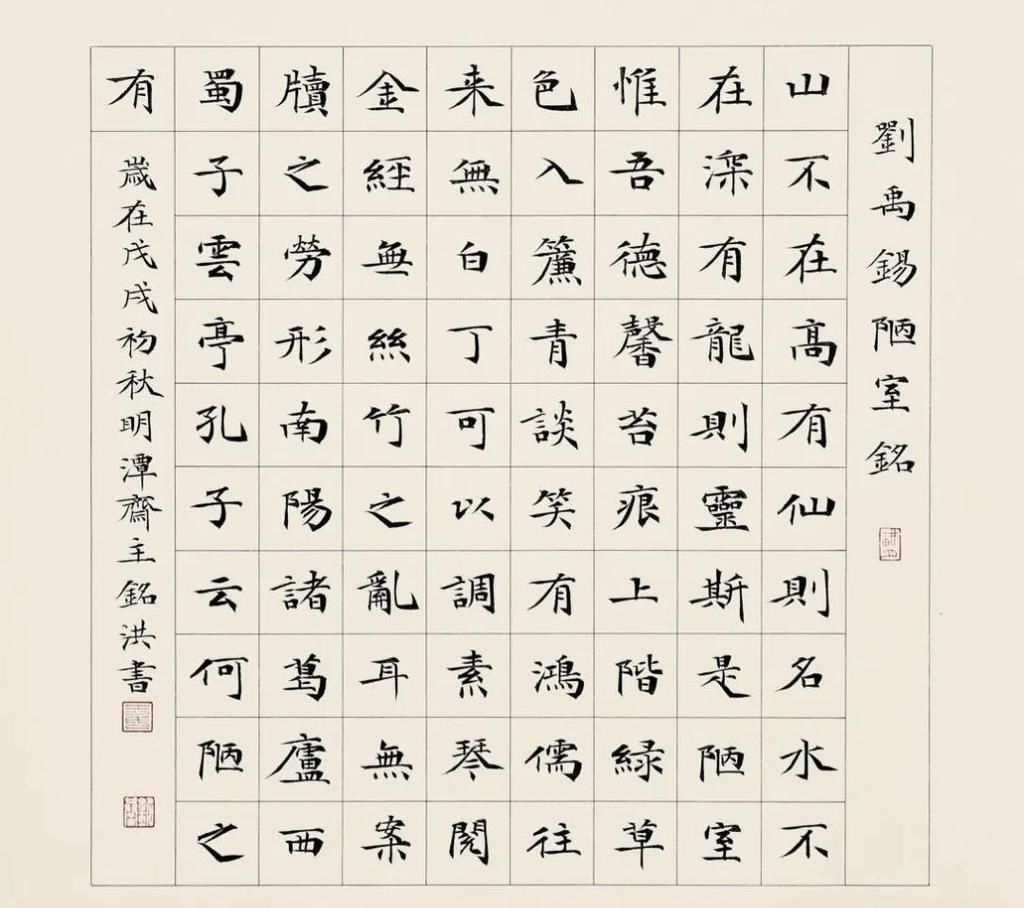 劉禹錫陋室銘
山不在高有仙則名水不
在深有龍則靈斯是陋室
惟吾德馨苔痕上階緑草
色入簾青談笑有鴻儒往
来無白丁可以調素琴閱
金經無絲竹之亂耳無案
牘之勞形南陽諸葛廬西
蜀子雲亭孔子云何陋之
有
歲在戊戌初秋明潭齋主銘洪書